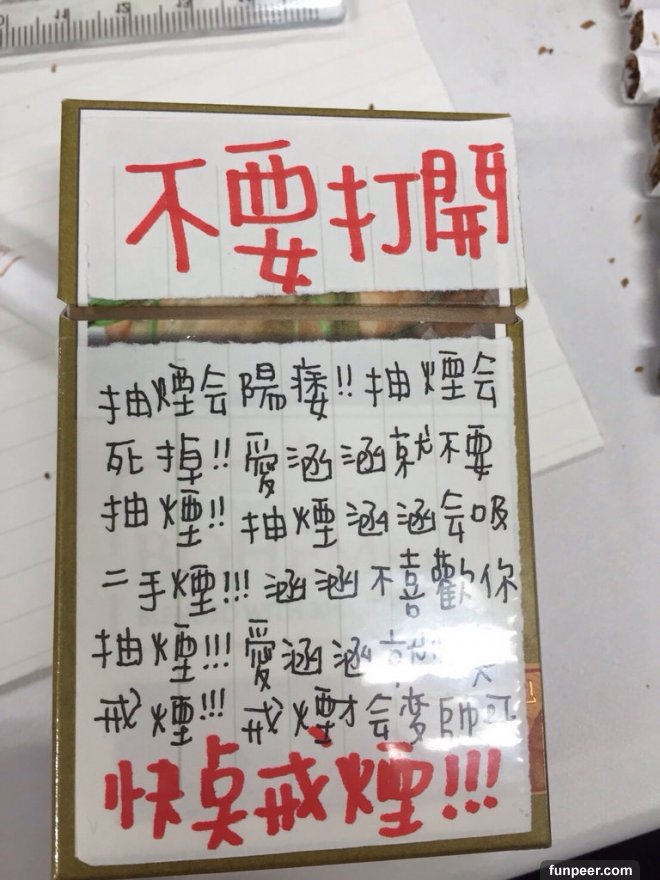 不要打開
抽煙会陽痿!!抽煙会
死掉!!愛涵涵就不要
抽煙!!抽煙涵涵会吸
二手煙!!!涵涵不喜歡你
抽煙!!!愛涵涵就
戒煙!!!戒煙才会变帥
funpeer.com